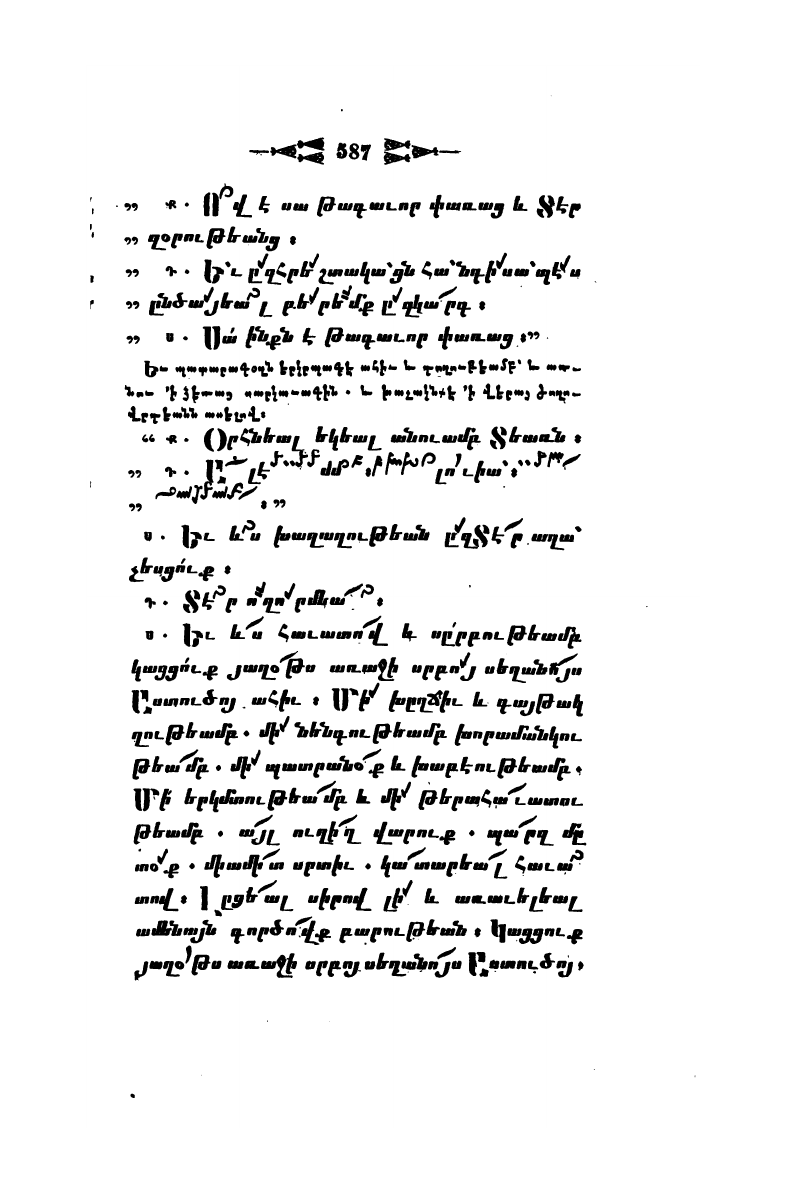 587
„ Ք. Ո՞վ է սա թագաւոր փառաց և Տէր
„ զօրութեանց :
„ Դ. Եւ ըզհրեշտակացն հանգիսապէս
„ ընծայեալ բերեմք ըզկարգ :
„ Ս. Սա՛ ինքն է թագաւոր փառաց :”
առ-
նու 'ի ձեռաց սարկաւագին . և խաչակնքէ 'ի վերայ ժողո-
վըրդեանն ասելով:
“ Ք. Օրհնեալ եկեալ անուամբ Տեառն :
„ Դ.
„ : ”
Ս. Եւ ևս խաղաղութեան ըզՏէր աղա՛
չեսցուք :
Դ. Տէր ողորմեա :
Ս. Եւ ևս հաւատով և սըրբութեամբ
կացցուք յաղօթս առաջի սրբոյ սեղանոյս
Աստուծոյ ահիւ : Մի՛ խըղճիւ և գայթակ
ղութեամբ . մի՛ նենգութեամբ խորամանկու
թեամբ . մի՛ պատրանօք և խաբէութեամբ.
Մի՛ երկմտութեամբ և մի՛ թերահաւատու
թեամբ . այլ ուղիղ վարուք . պարզ մը
տօք . միամիտ սրտիւ . կատարեալ հաւա
տով: Լըցեալ սիրով լի և առաւելեալ
ամենայն գործովք բարութեան : Կացցուք
յաղօթս առաջի սրբոյ սեղանոյս Աստուծոյ.